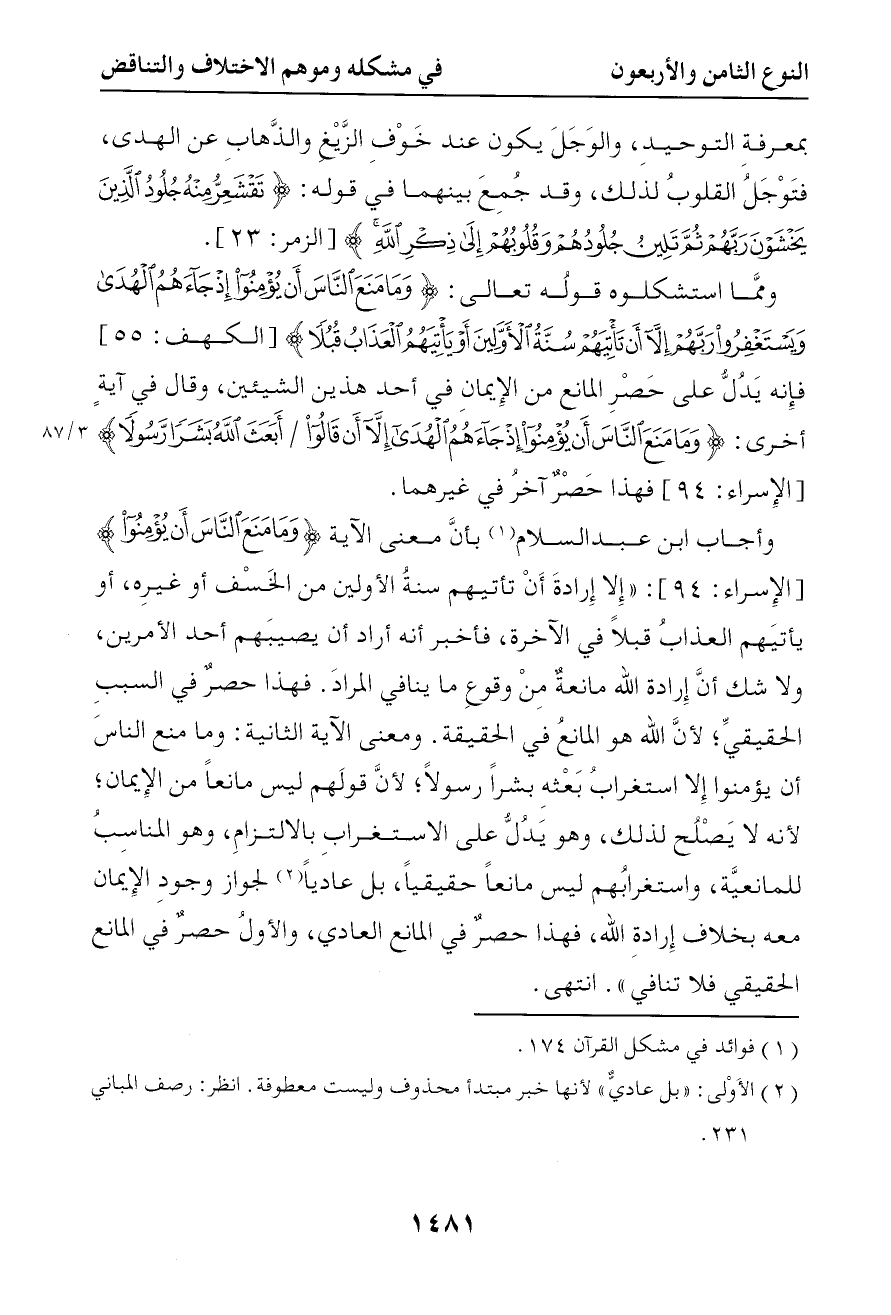 النوع الثامن والأربعون في مشكله وموهم الاختلاف والتناقض
بمعرفة التوحيد، والوَجَلَ يكون عند خَوْفِ الزَّيْغِ والذَّهاب عن الهدى،
فتَوْجَلُ القلوبُ لذلك، وقد جُمِعَ بينهما في قوله: ﴿ تَقْشَعِرُّ مِنْهُ جُلُودُ ٱلَّذِينَ
يَخْشَوْنَ رَبَّهُمْ ثُمَّ تَلِينُ جُلُودُهُمْ وَقُلُوبُهُمْ إِلَىٰ ذِكْرِ ٱللَّهِ ﴾ [الزمر: ٢٣].
وممَّا استشكلوه قولُه تعالى: ﴿ وَمَا مَنَعَ ٱلنَّاسَ أَن يُؤْمِنُوٓا۟ إِذْ جَآءَهُمُ ٱلْهُدَىٰ
وَيَسْتَغْفِرُوا۟ رَبَّهُمْ إِلَّآ أَن تَأْتِيَهُمْ سُنَّةُ ٱلْأَوَّلِينَ أَوْ يَأْتِيَهُمُ ٱلْعَذَابُ قُبُلًا ﴾ [الكهف: ٥٥]
فإنه يَدُلُّ على حَصْرِ المانع من الإيمان في أحد هذين الشيئين، وقال في آيةٍ
أخرى: ﴿ وَمَا مَنَعَ ٱلنَّاسَ أَن يُؤْمِنُوٓا۟ إِذْ جَآءَهُمُ ٱلْهُدَىٰٓ إِلَّآ أَن قَالُوٓا۟ / أَبَعَثَ ٱللَّهُ بَشَرًا رَّسُولًا ﴾ ٨٧/٣
[الإسراء: ٩٤] فهذا حَصْرٌ آخرُ في غيرهما.
وأجاب ابن عبدالسلام(١) بأنَّ معنى الآية ﴿ وَمَا مَنَعَ ٱلنَّاسَ أَن يُؤْمِنُوٓا۟ ﴾
[الإسراء: ٩٤]: «إلا إرادةَ أنْ تأتيهم سنةُ الأولين من الخَسْف أو غيرِه، أو
يأتيَهم العذابُ قبلاً في الآخرة، فأخبر أنه أراد أن يصيبَهم أحد الأمرين،
ولا شك أنَّ إرادة الله مانعةٌ مِنْ وقوعِ ما ينافي المرادَ. فهذا حصرٌ في السببِ
الحقيقيِّ؛ لأنَّ الله هو المانعُ في الحقيقة. ومعنى الآية الثانية: وما منع الناسَ
أن يؤمنوا إلا استغرابُ بَعْثِه بشراً رسولاً؛ لأنَّ قولَهم ليس مانعاً من الإيمان؛
لأنه لا يَصْلُح لذلك، وهو يَدُلُّ على الاستغرابِ بالالتزام، وهو المناسبُ
للمانعيَّة، واستغرابُهم ليس مانعاً حقيقياً، بل عادياً(٢) لجواز وجودِ الإيمان
معه بخلاف إرادةِ الله، فهذا حصرٌ في المانع العادي، والأولُ حصرٌ في المانع
الحقيقي فلا تنافي». انتهى.
(١) فوائد في مشكل القرآن ١٧٤.
(٢) الأَوْلى: «بل عاديٌّ» لأنها خبر مبتدأ محذوف وليست معطوفة. انظر: رصف المباني
٢٣١.
١٤٨١